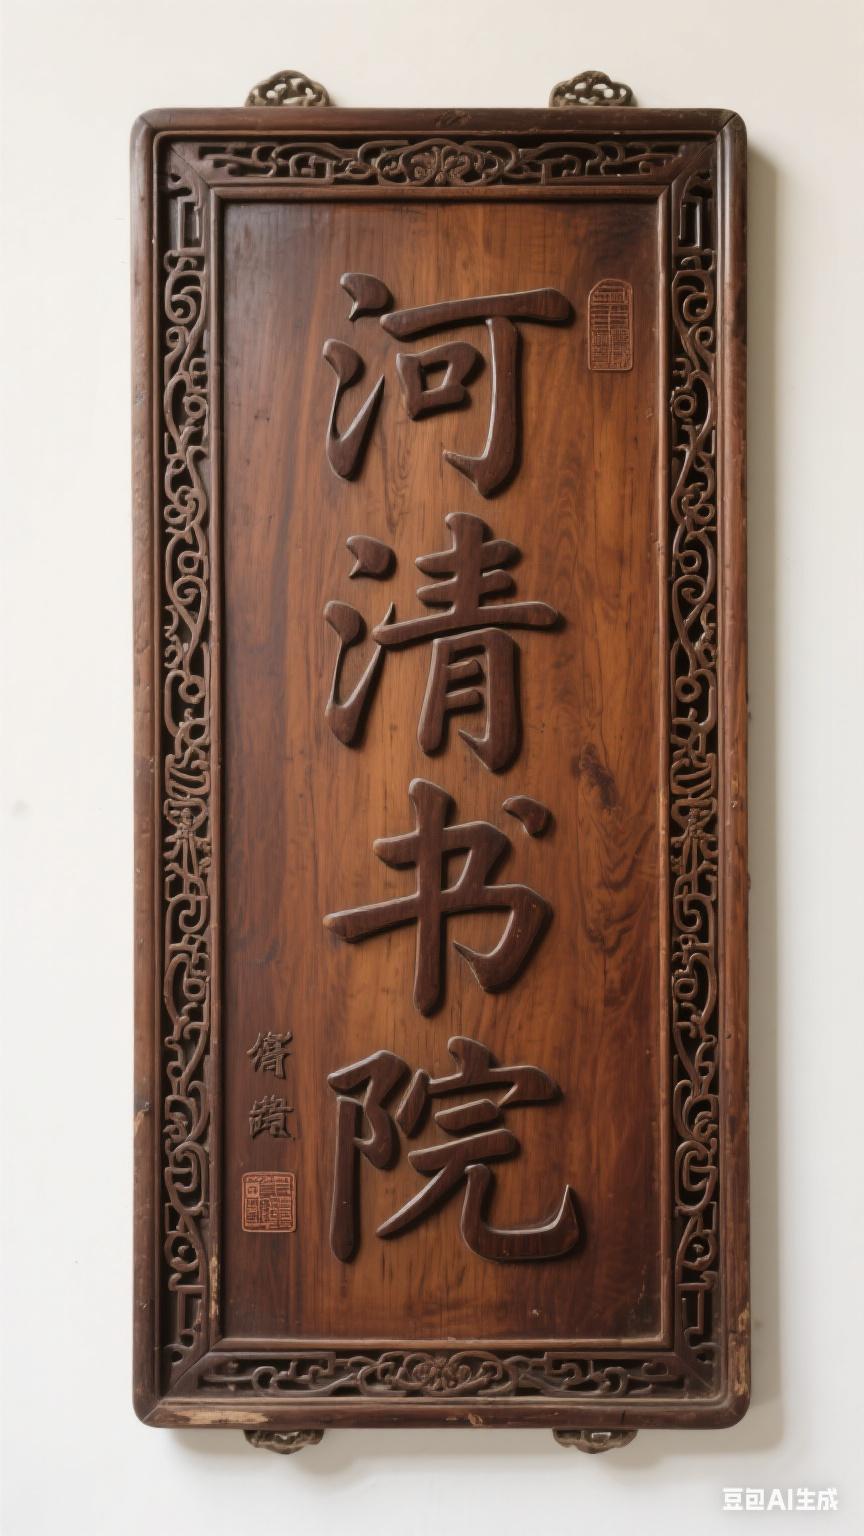 河清书院
豆包AI生成